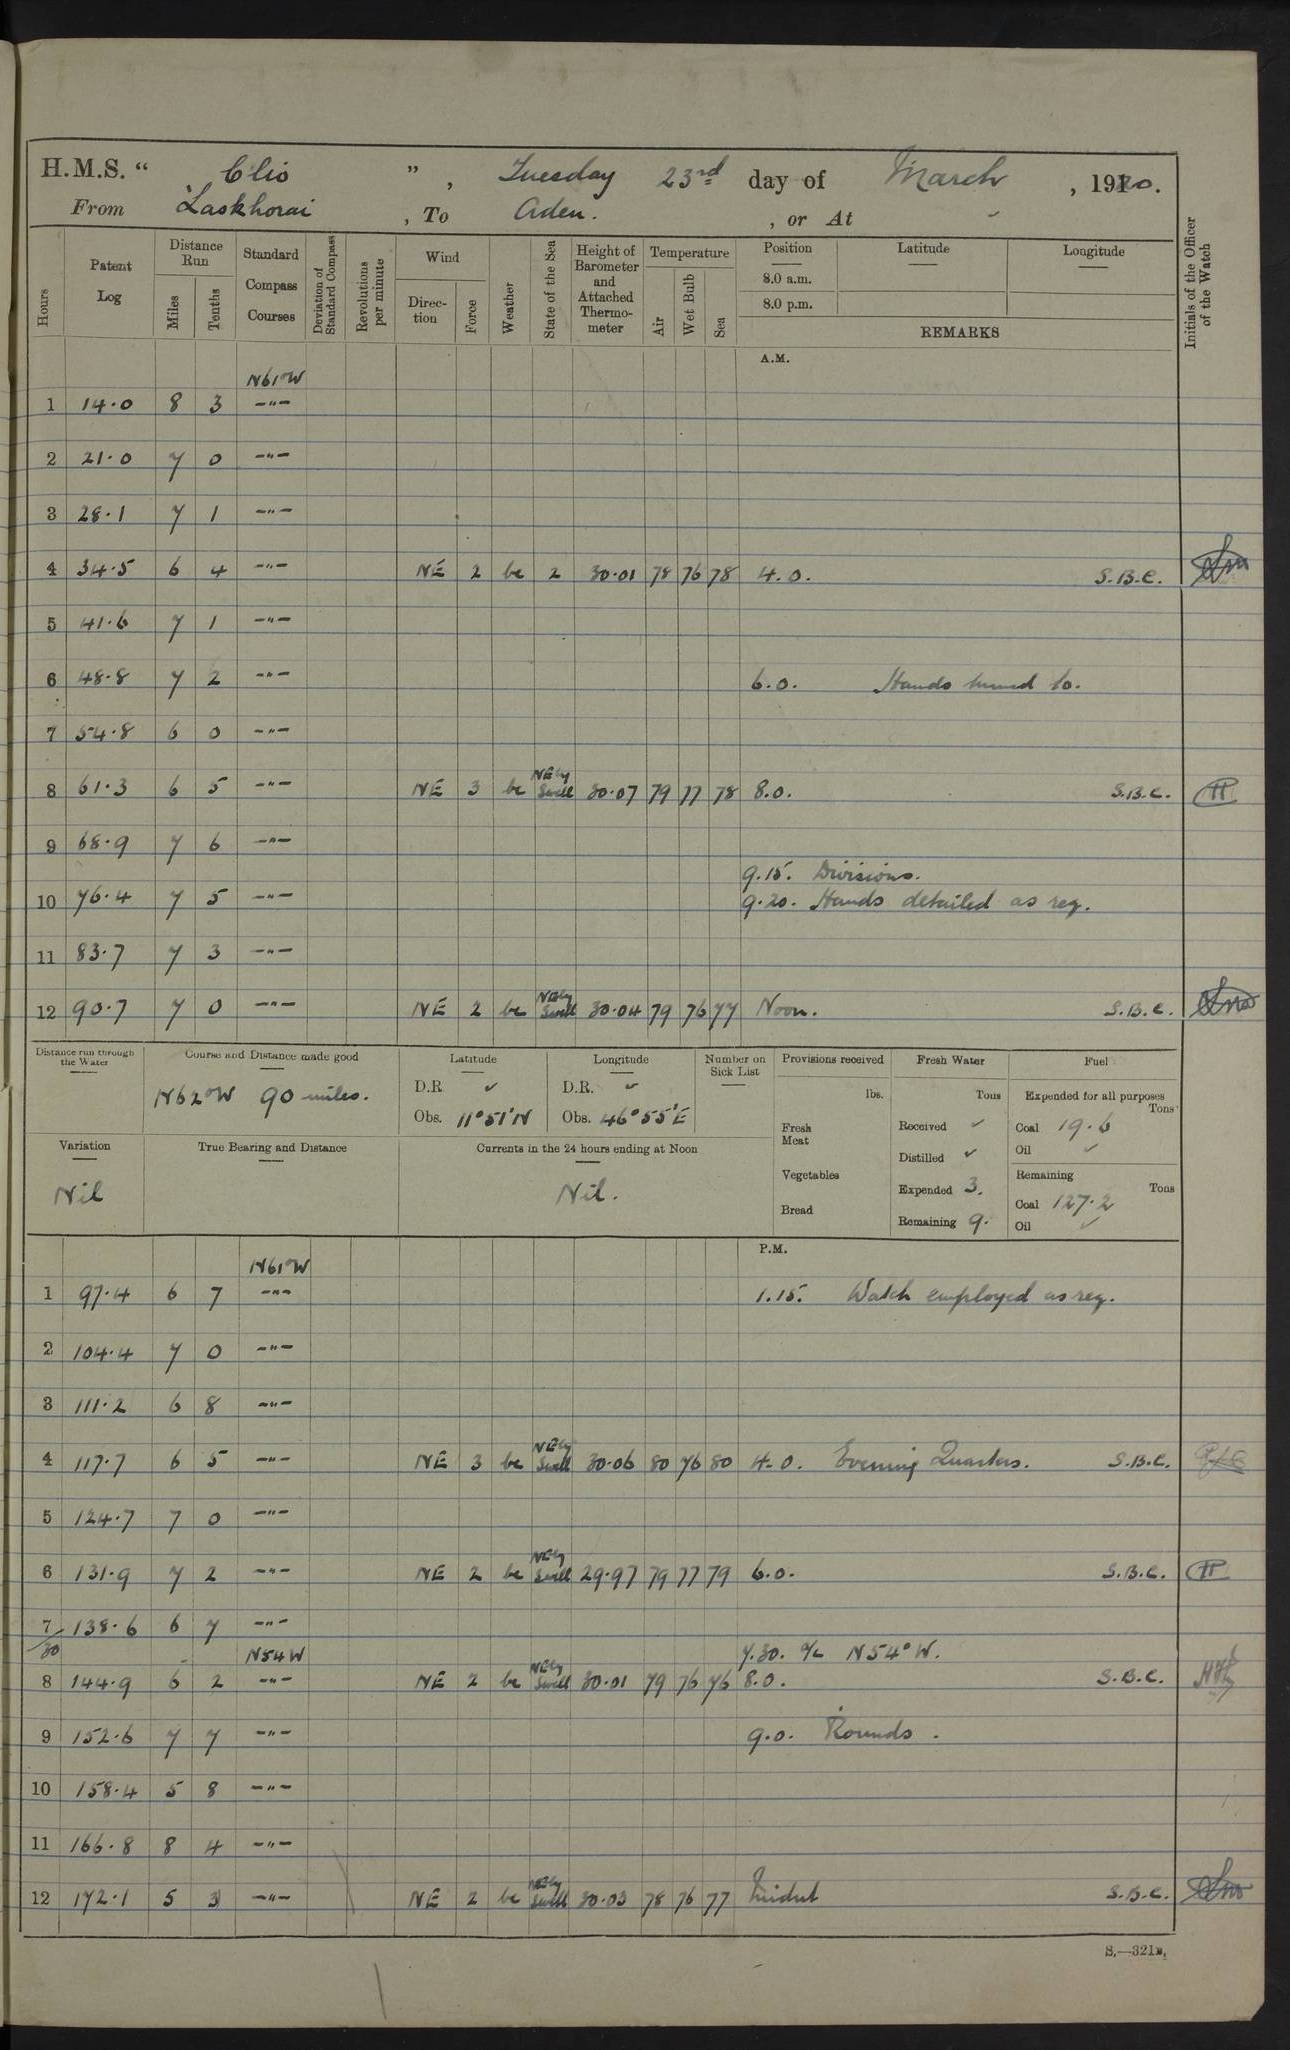 H.M.S. “ Clio ” , Tuesday 23rd day of March , 1920.
From Laskhorai , To Aden. , or At
Hours Patent Log Distance Run Miles Tenths Standard Compass Courses Deviation of Standard Compass Revolutions per minute Wind Direc-tion Force Weather State of the Sea Height of Barometer and Attached Thermo-meter Temperature Air Wet Bulb Sea Position 8.0 a.m. 8.0 p.m. Latitude Longitude REMARKS Initials of the Officer of the Watch
A.M.
N61°W
1 14.0 8 3 -"-
2 21.0 7 0 -"-
3 28.1 7 1 -"-
4 34.5 6 4 -"- NE 2 bc 2 30.01 78 76 78 4.0. S.B.C.
5 41.6 7 1 -"-
6 48.8 7 2 -"- 6.0. Hands turned to.
7 54.8 6 0 -"-
8 61.3 6 5 -"- NE 3 bc NEly Swell 30.07 79 77 78 8.0. S.B.C.
9 68.9 7 6 -"-
9.15. Divisions.
10 76.4 7 5 -"- 9.20. Hands detailed as req.
11 83.7 7 3 -"-
12 90.7 7 0 -"- NE 2 bc NEly Swell 30.04 79 76 77 Noon. S.B.C.
Distance run through the Water Course and Distance made good Latitude Longitude Number on Sick List Provisions received Fresh Water Fuel
N62°W 90 miles. D.R. ✓ D.R. ✓ lbs. Tons Expended for all purposes Tons
Obs. 11°51'N Obs. 46°55'E Fresh Meat Received ✓ Coal 19.6
Variation True Bearing and Distance Currents in the 24 hours ending at Noon Distilled ✓ Oil ✓
Vegetables Expended 3. Remaining Tons
Nil Nil. Bread Remaining 9. Coal 127.2
Oil ✓
P.M.
N61°W
1 97.4 6 7 -"- 1.15. Watch employed as req.
2 104.4 7 0 -"-
3 111.2 6 8 -"-
4 117.7 6 5 -"- NE 3 bc NEly Swell 30.06 80 76 80 4.0. Evening Quarters. S.B.C.
5 124.7 7 0 -"-
6 131.9 7 2 -"- NE 2 bc NEly Swell 29.97 79 77 79 6.0. S.B.C.
7 138.6 6 7 -"-
/30 N54W 7.30. a/c N54°W.
8 144.9 6 2 -"- NE 2 bc NEly Swell 30.01 79 76 76 8.0. S.B.C.
9 152.6 7 7 -"- 9.0. Rounds.
10 158.4 5 8 -"-
11 166.8 8 4 -"-
12 172.1 5 3 -"- NE 2 bc NEly Swell 30.03 78 76 77 Midnt S.B.C.
S.—321B.